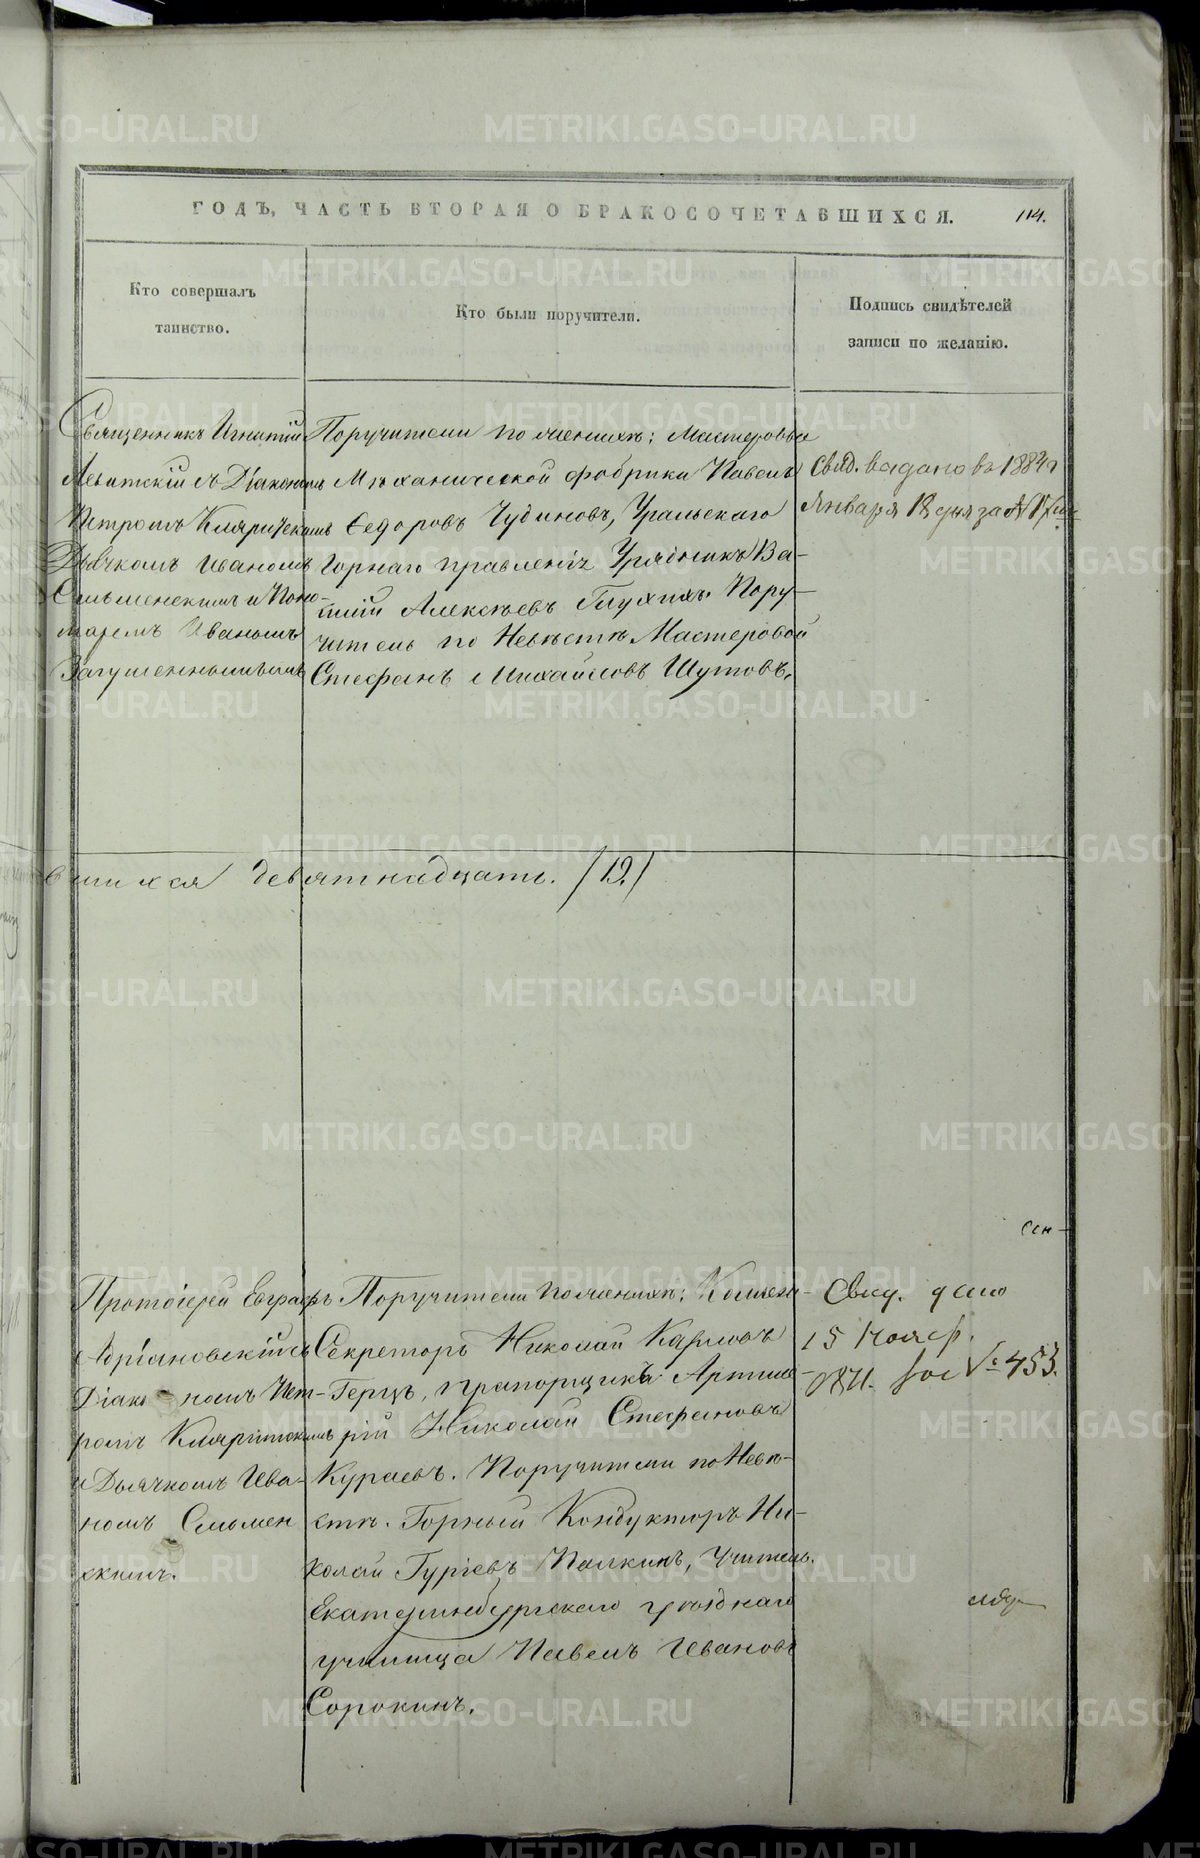 ГОДЪ, ЧАСТЬ ВТОРАЯ О БРАКОСОЧЕТАВШИХСЯ.
114.
Кто совершалъ
таинство.
Кто были поручители.
Подпись свидѣтелей
записи по желанію.
Священникъ Игнатій
Левитскій съ Діакономъ
Петромъ
Дьячкомъ Иваномъ
Сельменскимъ и Поно-
маремъ Иваномъ
Поручители по женихѣ: Мастеровые
Механической фабрики Павелъ
Ѳедоровъ Чудиновъ, Уральскаго
Горнаго правленія Урядникъ Ва-
силій Алексѣевъ Глухихъ. Пору-
читель по Невѣстѣ Мастеровой
Стефанъ Михайловъ Шутовъ.
Свид. выдано въ 1883 г
Января 18 дня за №
вшихся девятнадцать. /19./
Сен-
Протоіерей Евграфъ
Адріановскій съ
Діакономъ Пет-
ромъ
и Дьячкомъ Ива-
номъ Сельмен
скимъ.
Поручители по женихѣ: Коллежс-
Секретарь Николай Карловъ
Герцъ, Прапорщикъ Артилле-
рій Николай Стефановъ
Кураевъ. Поручители по Невѣ-
стѣ. Горный Кондукторъ Ни-
колай Гуріевъ Палкинъ, Учитель
Екатеринбургскаго уѣзднаго
училища Павелъ Ивановъ
Сорокинъ.
Свид. дано
15 Нояб.
1871. № 453.
METRIKI.GASO-URAL.RU